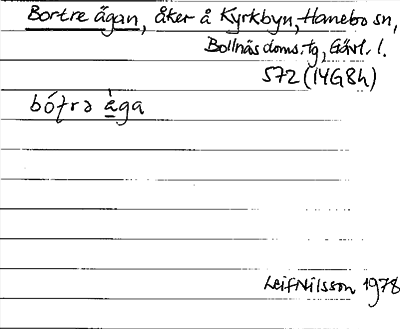 Bortre ägan, åker å Kyrkbyn, Hanebo sn,
Bollnäs doms.-tg, Gävl. l.
572 (14G8h)
bót̨rə àga
Leif Nilsson 1978